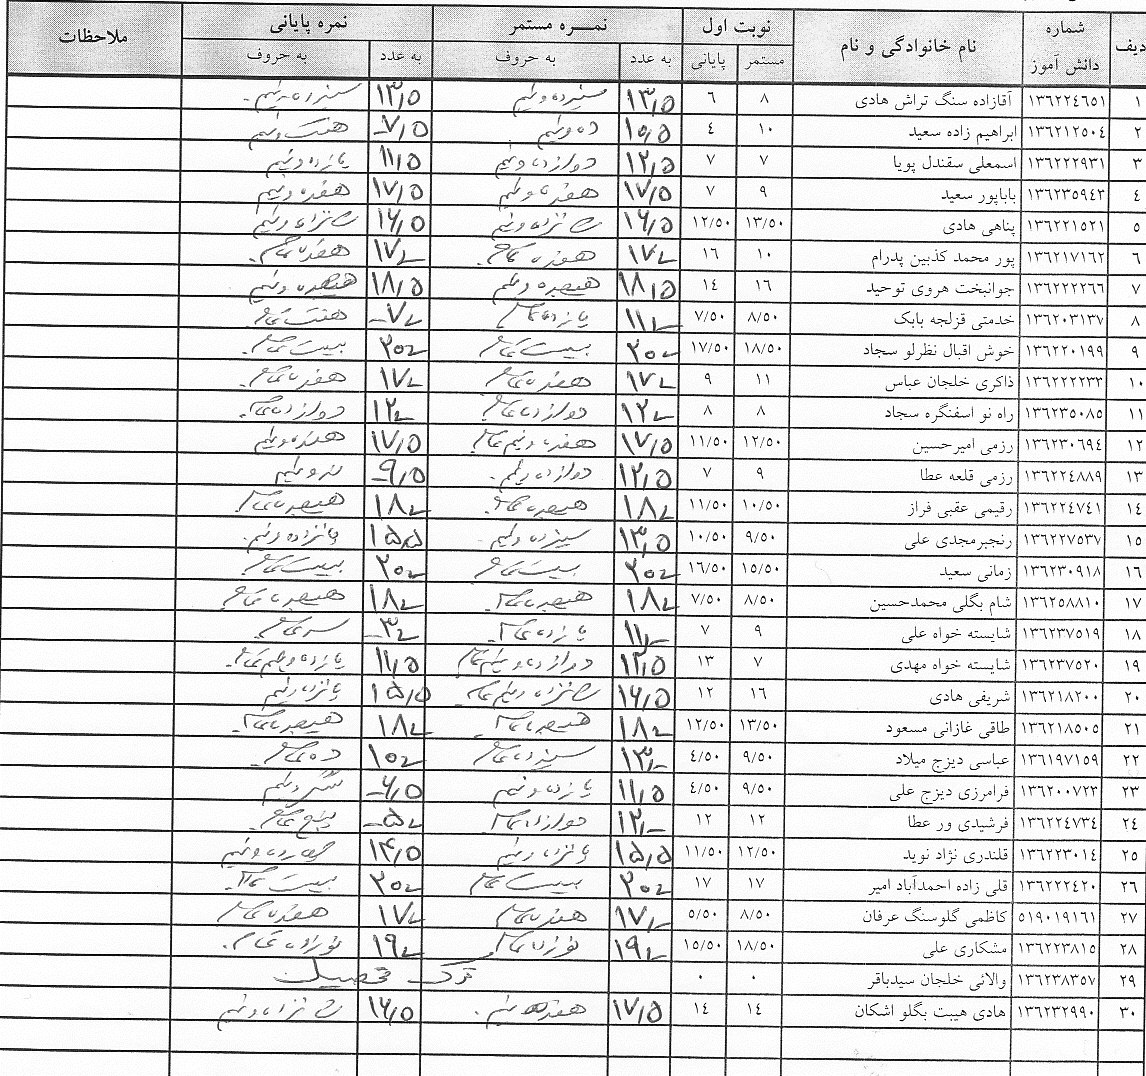 دیف شماره دانش آموز نام خانوادگی و نام نوبت اول نمـــره مستمر نمره پایانی ملاحظات
مستمر پایانی به عدد به حروف به عدد به حروف
۱ ۱۳۶۲۲۴۶۵۱ آقازاده سنگ تراش هادی ۸ ۶ ۱۳٫۵ سیزده ونیم ۱۳٫۵ سیزده ونیم
۲ ۱۳۶۲۱۲۵۰۴ ابراهیم زاده سعید ۱۰ ۴ ۱۰٫۵ ده ونیم ۷٫۵ هفت ونیم
۳ ۱۳۶۲۲۲۹۳۱ اسمعلی سقندل پویا ۷ ۷ ۱۲٫۵ دوازده ونیم ۱۱٫۵ یازده ونیم
۴ ۱۳۶۲۳۵۹۴۳ باباپور سعید ۹ ۷ ۱۷٫۵ هفده ونیم ۱۷٫۵ هفده ونیم
۵ ۱۳۶۲۲۱۵۲۱ پناهی هادی ۱۳/۵۰ ۱۲/۵۰ ۱۶٫۵ شانزده ونیم ۱۶٫۵ شانزده ونیم
۶ ۱۳۶۲۱۷۱۶۲ پور محمد کذبین پدرام ۱۰ ۱۶ ۱۷ هفده تمام ۱۷ هفده تمام
۷ ۱۳۶۲۲۲۲۶۶ جوانبخت هروی توحید ۱۶ ۱۴ ۱۸٫۵ هیجده ونیم ۱۸٫۵ هیجده ونیم
۸ ۱۳۶۲۰۳۱۳۷ خدمتی قزلجه بابک ۸/۵۰ ۷/۵۰ ۱۱ یازده تمام ۷ هفت تمام
۹ ۱۳۶۲۲۰۱۹۹ خوش اقبال نظرلو سجاد ۱۸/۵۰ ۱۷/۵۰ ۲۰ بیست تمام ۲۰ بیست تمام
۱۰ ۱۳۶۲۲۲۲۳۳ ذاکری خلجان عباس ۱۱ ۹ ۱۷ هفده تمام ۱۷ هفده تمام
۱۱ ۱۳۶۲۳۵۰۸۵ راه نو اسفنگره سجاد ۸ ۸ ۱۲ دوازده تمام ۱۲ دوازده تمام
۱۲ ۱۳۶۲۳۰۶۹۴ رزمی امیرحسین ۱۲/۵۰ ۱۱/۵۰ ۱۷٫۵ هفده ونیم تمام ۱۷٫۵ هفده ونیم
۱۳ ۱۳۶۲۲۴۸۸۹ رزمی قلعه عطا ۹ ۷ ۱۲٫۵ دوازده ونیم ۹٫۵ نه ونیم
۱۴ ۱۳۶۲۲۴۷۴۱ رقیمی عقبی فراز ۱۰/۵۰ ۱۱/۵۰ ۱۸ هیجده تمام ۱۸ هیجده تمام
۱۵ ۱۳۶۲۲۷۵۳۷ رنجبرمجدی علی ۹/۵۰ ۱۰/۵۰ ۱۳٫۵ سیزده ونیم ۱۵٫۵ پانزده ونیم
۱۶ ۱۳۶۲۳۰۹۱۸ زمانی سعید ۱۵/۵۰ ۱۶/۵۰ ۲۰ بیست تمام ۲۰ بیست تمام
۱۷ ۱۳۶۲۵۸۸۱۰ شام بگلی محمدحسین ۸/۵۰ ۷/۵۰ ۱۸ هیجده تمام ۱۸ هیجده تمام
۱۸ ۱۳۶۲۳۷۵۱۹ شایسته خواه علی ۹ ۷ ۱۱ یازده تمام ۳ سه تمام
۱۹ ۱۳۶۲۳۷۵۲۰ شایسته خواه مهدی ۷ ۱۳ ۱۲٫۵ دوازده ونیم تمام ۱۱٫۵ یازده ونیم تمام
۲۰ ۱۳۶۲۱۸۲۰۰ شریفی هادی ۱۶ ۱۲ ۱۶٫۵ شانزده ونیم تمام ۱۵٫۵ پانزده ونیم
۲۱ ۱۳۶۲۱۸۵۰۵ طاقی غازانی مسعود ۱۳/۵۰ ۱۲/۵۰ ۱۸ هیجده تمام ۱۸ هیجده تمام
۲۲ ۱۳۶۱۹۷۱۵۹ عباسی دیزج میلاد ۹/۵۰ ۴/۵۰ ۱۳ سیزده تمام ۱۰ ده تمام
۲۳ ۱۳۶۲۰۰۷۲۲ فرامرزی دیزج علی ۹/۵۰ ۴/۵۰ ۱۱٫۵ یازده ونیم ۶٫۵ شش ونیم
۲۴ ۱۳۶۲۲۴۷۳۴ فرشیدی ور عطا ۱۲ ۱۲ ۱۲ دوازده تمام ۵ پنج تمام
۲۵ ۱۳۶۲۲۳۰۱۴ قلندری نژاد نوید ۱۲/۵۰ ۱۱/۵۰ ۱۵٫۵ پانزده ونیم ۱۴٫۵ چهارده ونیم
۲۶ ۱۳۶۲۲۲۴۲۰ قلی زاده احمدآباد امیر ۱۷ ۱۷ ۲۰ بیست تمام ۲۰ بیست تمام
۲۷ ۵۱۹۰۱۹۱۶۱ کاظمی گلوسنگ عرفان ۸/۵۰ ۵/۵۰ ۱۷ هفده تمام ۱۷ هفده تمام
۲۸ ۱۳۶۲۲۳۸۱۵ مشکاری علی ۱۸/۵۰ ۱۵/۵۰ ۱۹ نوزده تمام ۱۹ نوزده تمام
۲۹ ۱۳۶۲۳۸۳۵۷ والائی خلجان سیدباقر ۰ ۰ ترک تحصیل
۳۰ ۱۳۶۲۳۲۹۹۰ هادی هیبت بگلو اشکان ۱۴ ۱۴ ۱۷٫۵ هفده ونیم ۱۶٫۵ شانزده ونیم